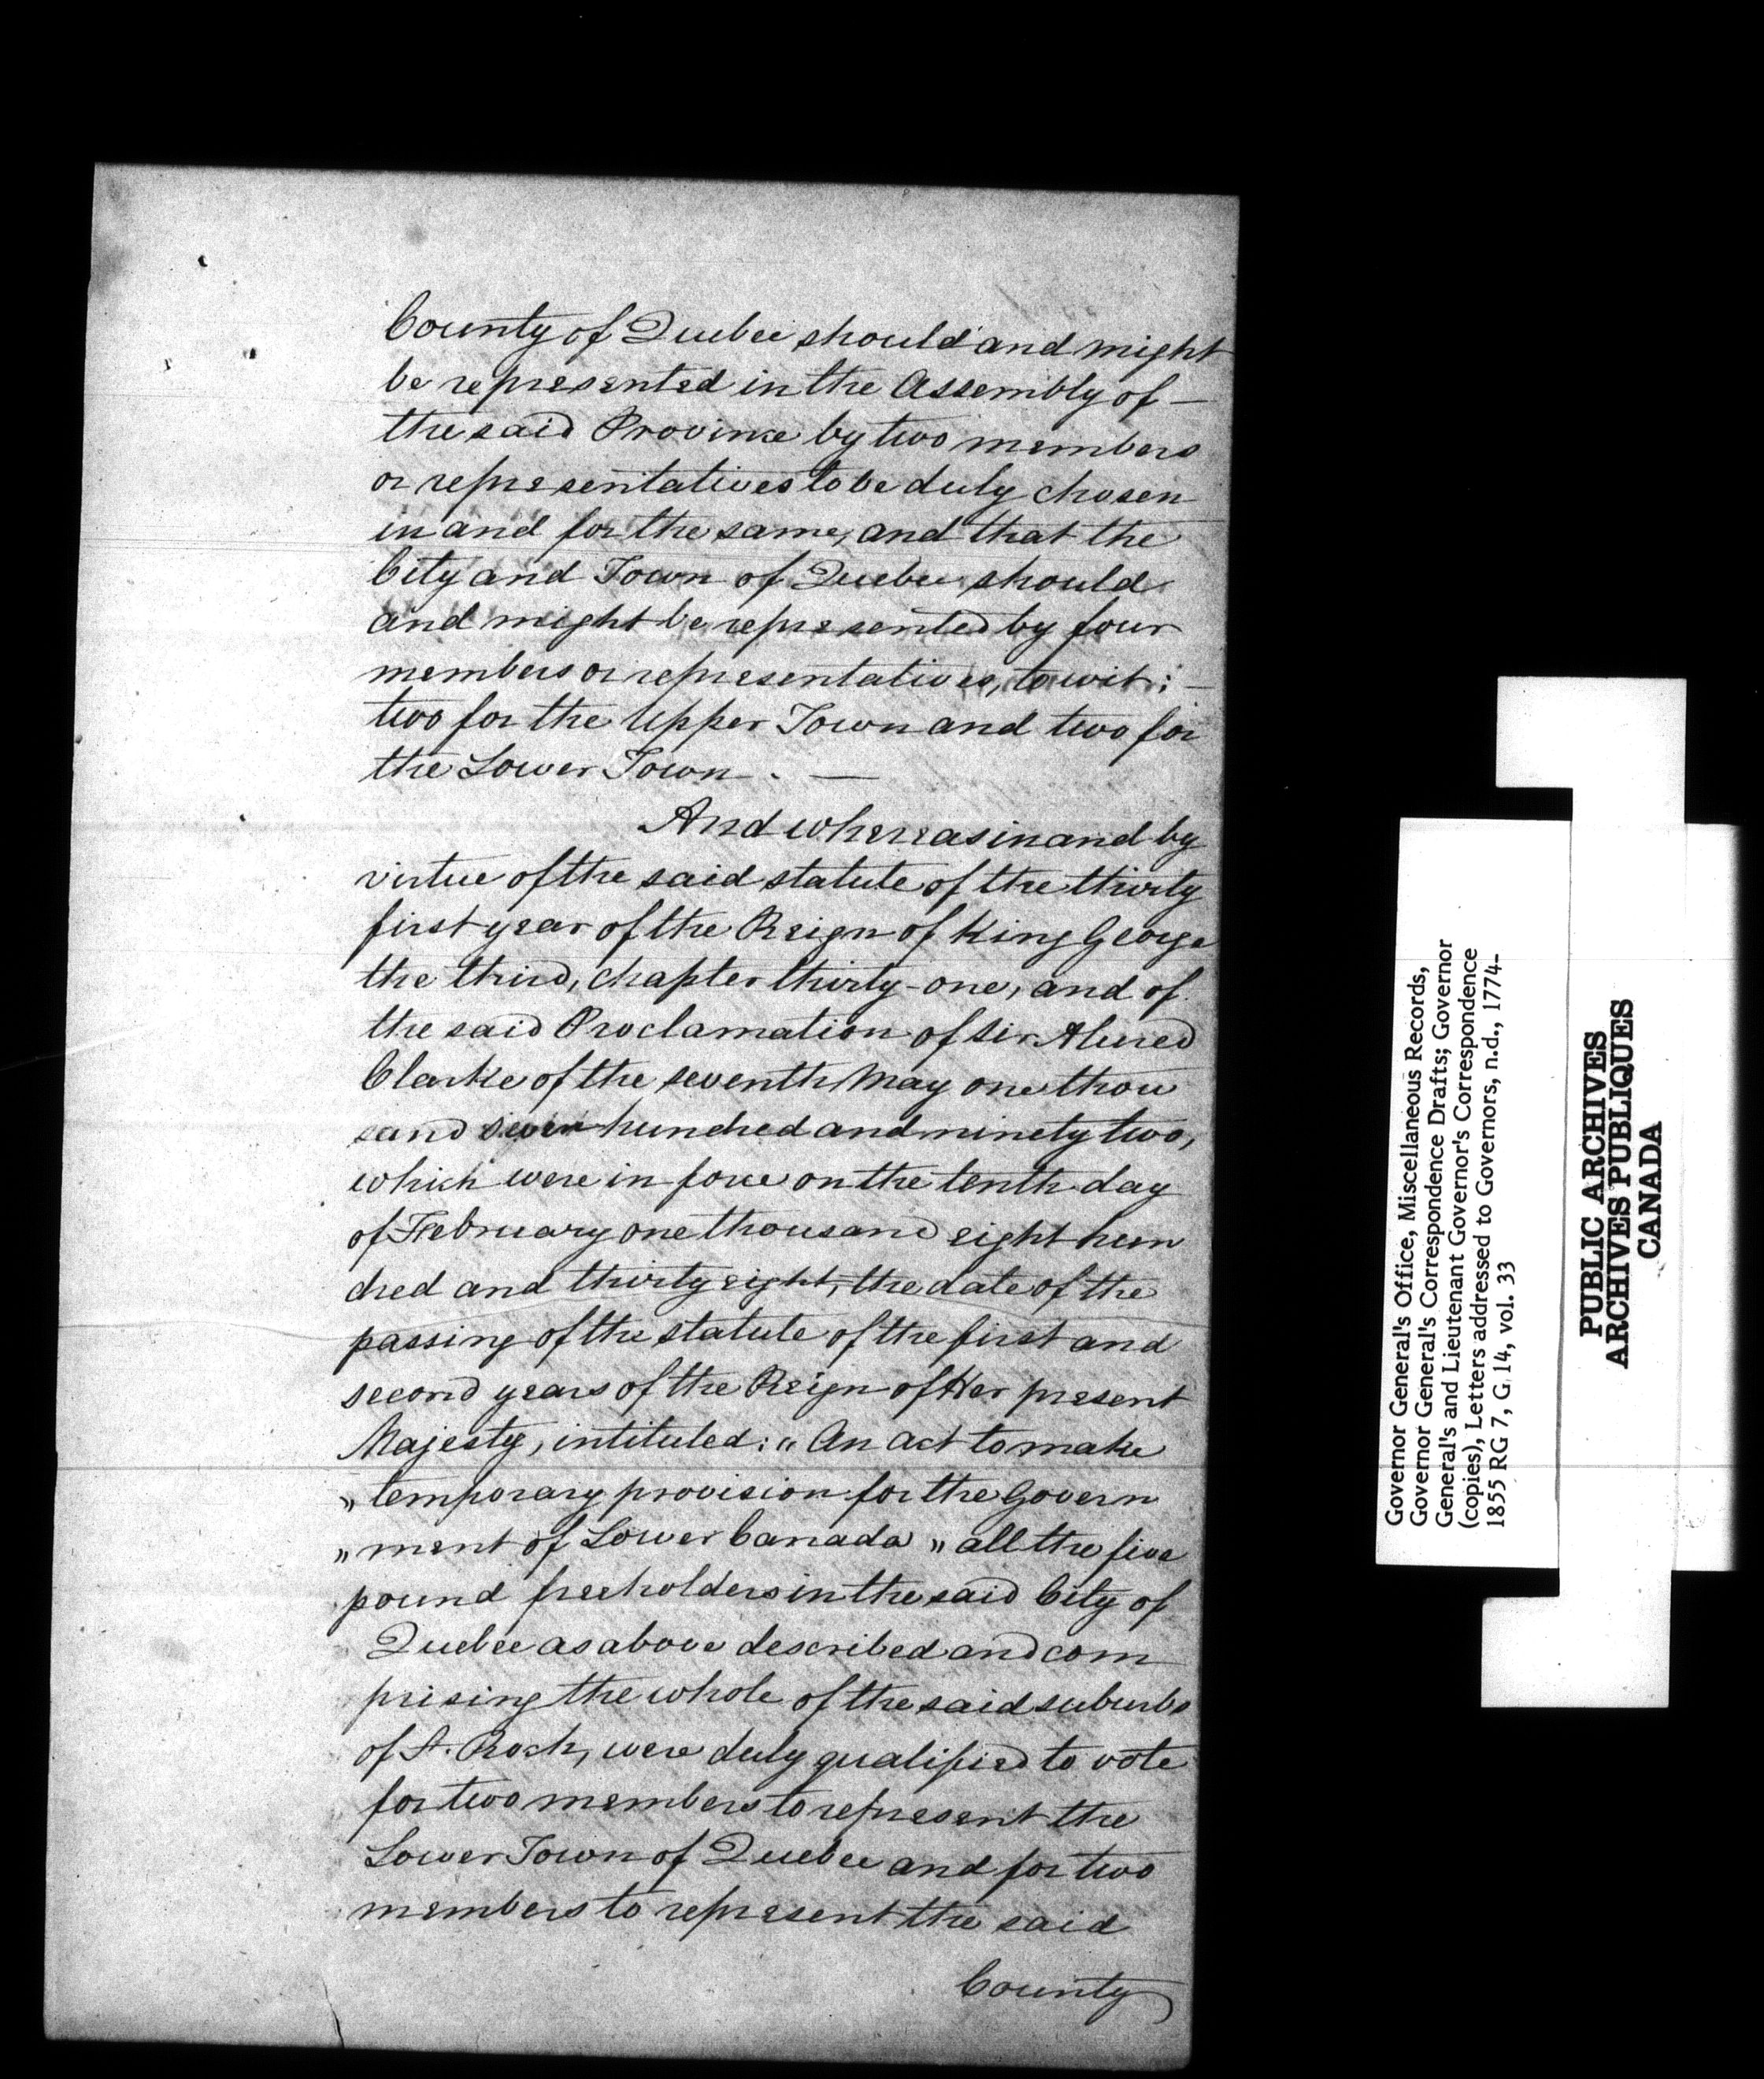 County of Quebec should and might
be represented in the Assembly of —
the said Province by two members
or representatives to be duly chosen
in and for the same, and that the
City and Town of Quebec should
and might be represented by four
members or representatives, to wit: —
two for the Upper Town and two for
the Lower Town. —
And whereas in and by
virtue of the said statute of the thirty
first year of the Reign of King George
the third, chapter thirty-one, and of
the said Proclamation of Sir Alured
Clarke of the seventh May one thou
sand seven hundred and ninety two,
which were in force on the tenth day
of February one thousand eight hun
dred and thirty eight, the date of the
passing of the statute of the first and
second years of the Reign of Her present
Majesty, intituled: „ An act to make
„ temporary provision for the Govern
„ ment of Lower Canada „ all the five
pound freeholders in the said City of
Quebec as above described and com
prising the whole of the said suburbs
of St. Roch, were duly qualified to vote
for two members to represent the
Lower Town of Quebec and for two
members to represent the said
County
Governor General's Office, Miscellaneous Records,
Governor General's Correspondence Drafts; Governor
General's and Lieutenant Governor's Correspondence
(copies), Letters addressed to Governors, n.d., 1774-
1855 RG 7, G 14, vol. 33
PUBLIC ARCHIVES
ARCHIVES PUBLIQUES
CANADA